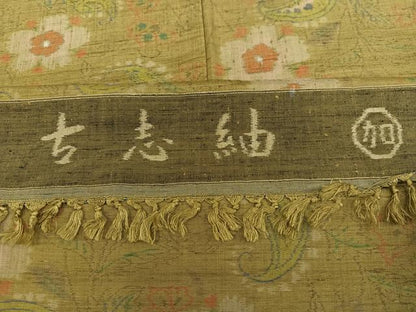 古志紬 加